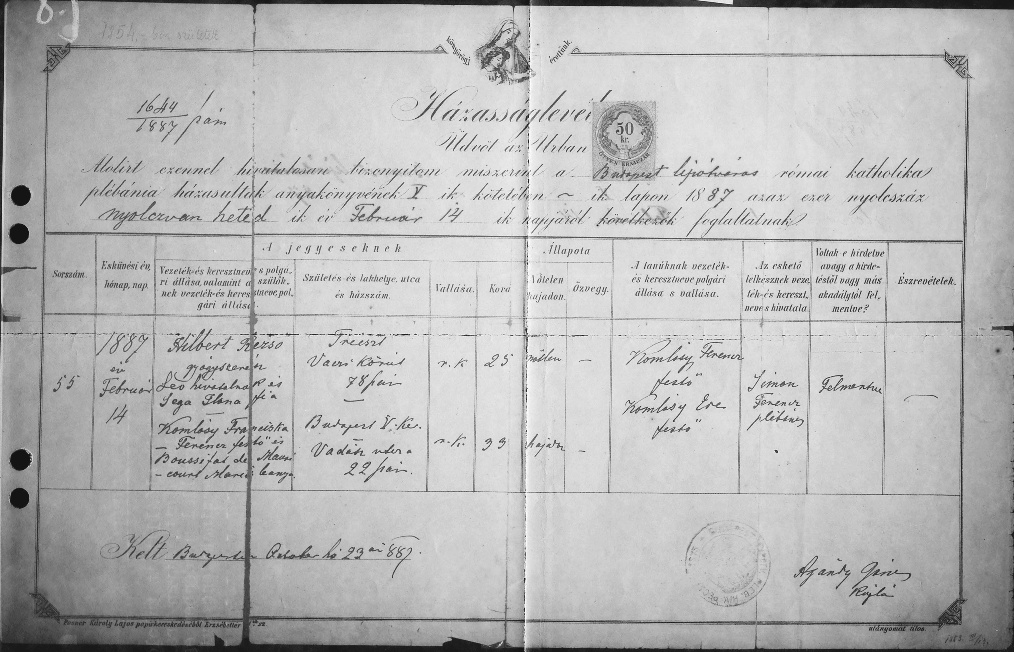 8.
könyörögj érettünk.
1644
1887 szám
Házasságlevél
50
kr.
Üdvöt az Urban
Alolirt ezennel hivatalosan bizonyitom miszerint a Budapest lipótváros római katholika
plébánia házasultak anyakönyvének V ik kötetében - ik lapon 1887 azaz ezer nyolcszáz
nyolczvan heted ik év Február 14 ik napjáról következők foglaltatnak
Sorszám.
Esküvési év, hónap, nap.
A jegyeseknek
Vezeték- és keresztneve s polgári állása, valamint a szülők
nek vezeték- és keresztneve, pol.
gári állása
Születés- és lakhelye, utca
és házszám.
Vallása.
Kora
Állapota
Nőtelen
hajadon.
Özvegy.
A tanúknak vezeték-
és keresztneve polgári
állása s vallása.
Az eskető
lelkésznek veze
ték- és kereszt.
neve s hivatala.
Voltak-e hirdetve
avagy a hirde-
téstől vagy más
akadálytól fel.
mentve?
Észrevételek.
55
1887
év
Február
14
Hilbert Rezso
gyógyszerész
Leo hivatalnok és
Sega Ilona fia
Trieszt
Vaczi Körut
78 szám
r. k
25
nőtlen
–
Komlósy Ferencz
festő
Komlósy Ere
festő
Simon
Ferencz
plébános
Felmentve
Komlósy Franciska
Ferencz festő és
Boussifat de Mauri
court Maria leánya
Budapest V. ker.
Vadász utcza
22 szám.
r. k.
33
hajadon
–
Kelt Budapesten October hó 23 án 887.
Posner Károly Lajos papirkereskedéséből Erzsébettér
utányomat tilos.